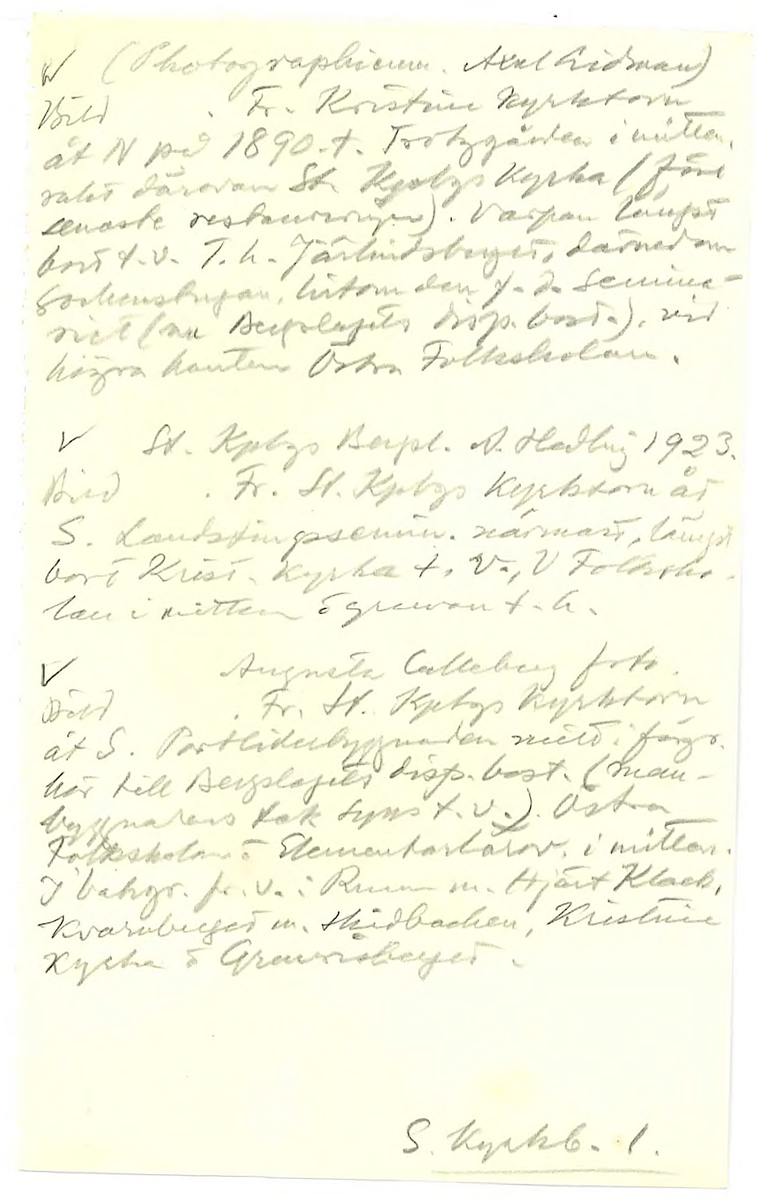 V (Photographicum. Axel Lidman)
Bild . Fr. Kristine Kyrktorn
åt N på 1890-t. Trotzgården i mitten,
rakt därovan St. Kpbgs Kyrka (före
senaste restaureringen). Varpan längst
bort t.v. T.h. Järlindsberget, därnedom
hitom den f.d. Semina-
riet (nu Bergslagets disp. bost.), vid
högra kanten Östra Folkskolan.
V St. Kpbgs Bergsl. A. Hedling 1923.
Bild . Fr. St. Kpbgs Kyrktorn åt
S. Landstingssemin. närmast, längst
bort Krist. Kyrka t.v., V Folksko-
lan i mitten o gruvan t.h.
V Augusta foto.
Bild . Fr. St. Kpbgs Kyrktorn
åt S. Portliderbyggnaden mitt i förgr.
hör till Bergslagets disp. bost. (man-
byggnadens tak syns t.v.). Östra
Folkskolan o Elementarlärov. i mitten.
I bakgr. fr. v.: m. Hjärt Klack,
Kvarnberget m. skidbacken, Kristine
Kyrka o Gruvrisberget.
S. Kyrkb. 1.